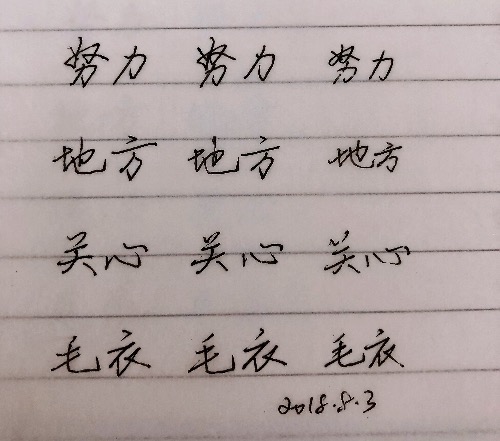 努力 努力 努力
地方 地方 地方
关心 关心 关心
毛衣 毛衣 毛衣
2018.8.3